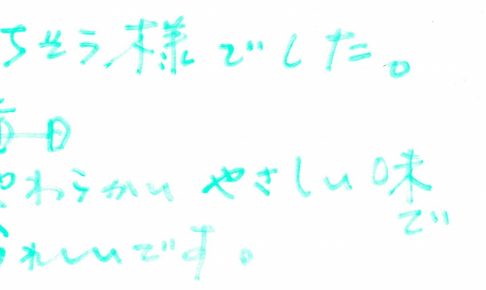 ちそう様でした。
一日
やわらかい やさしい味
で
うれしいです。